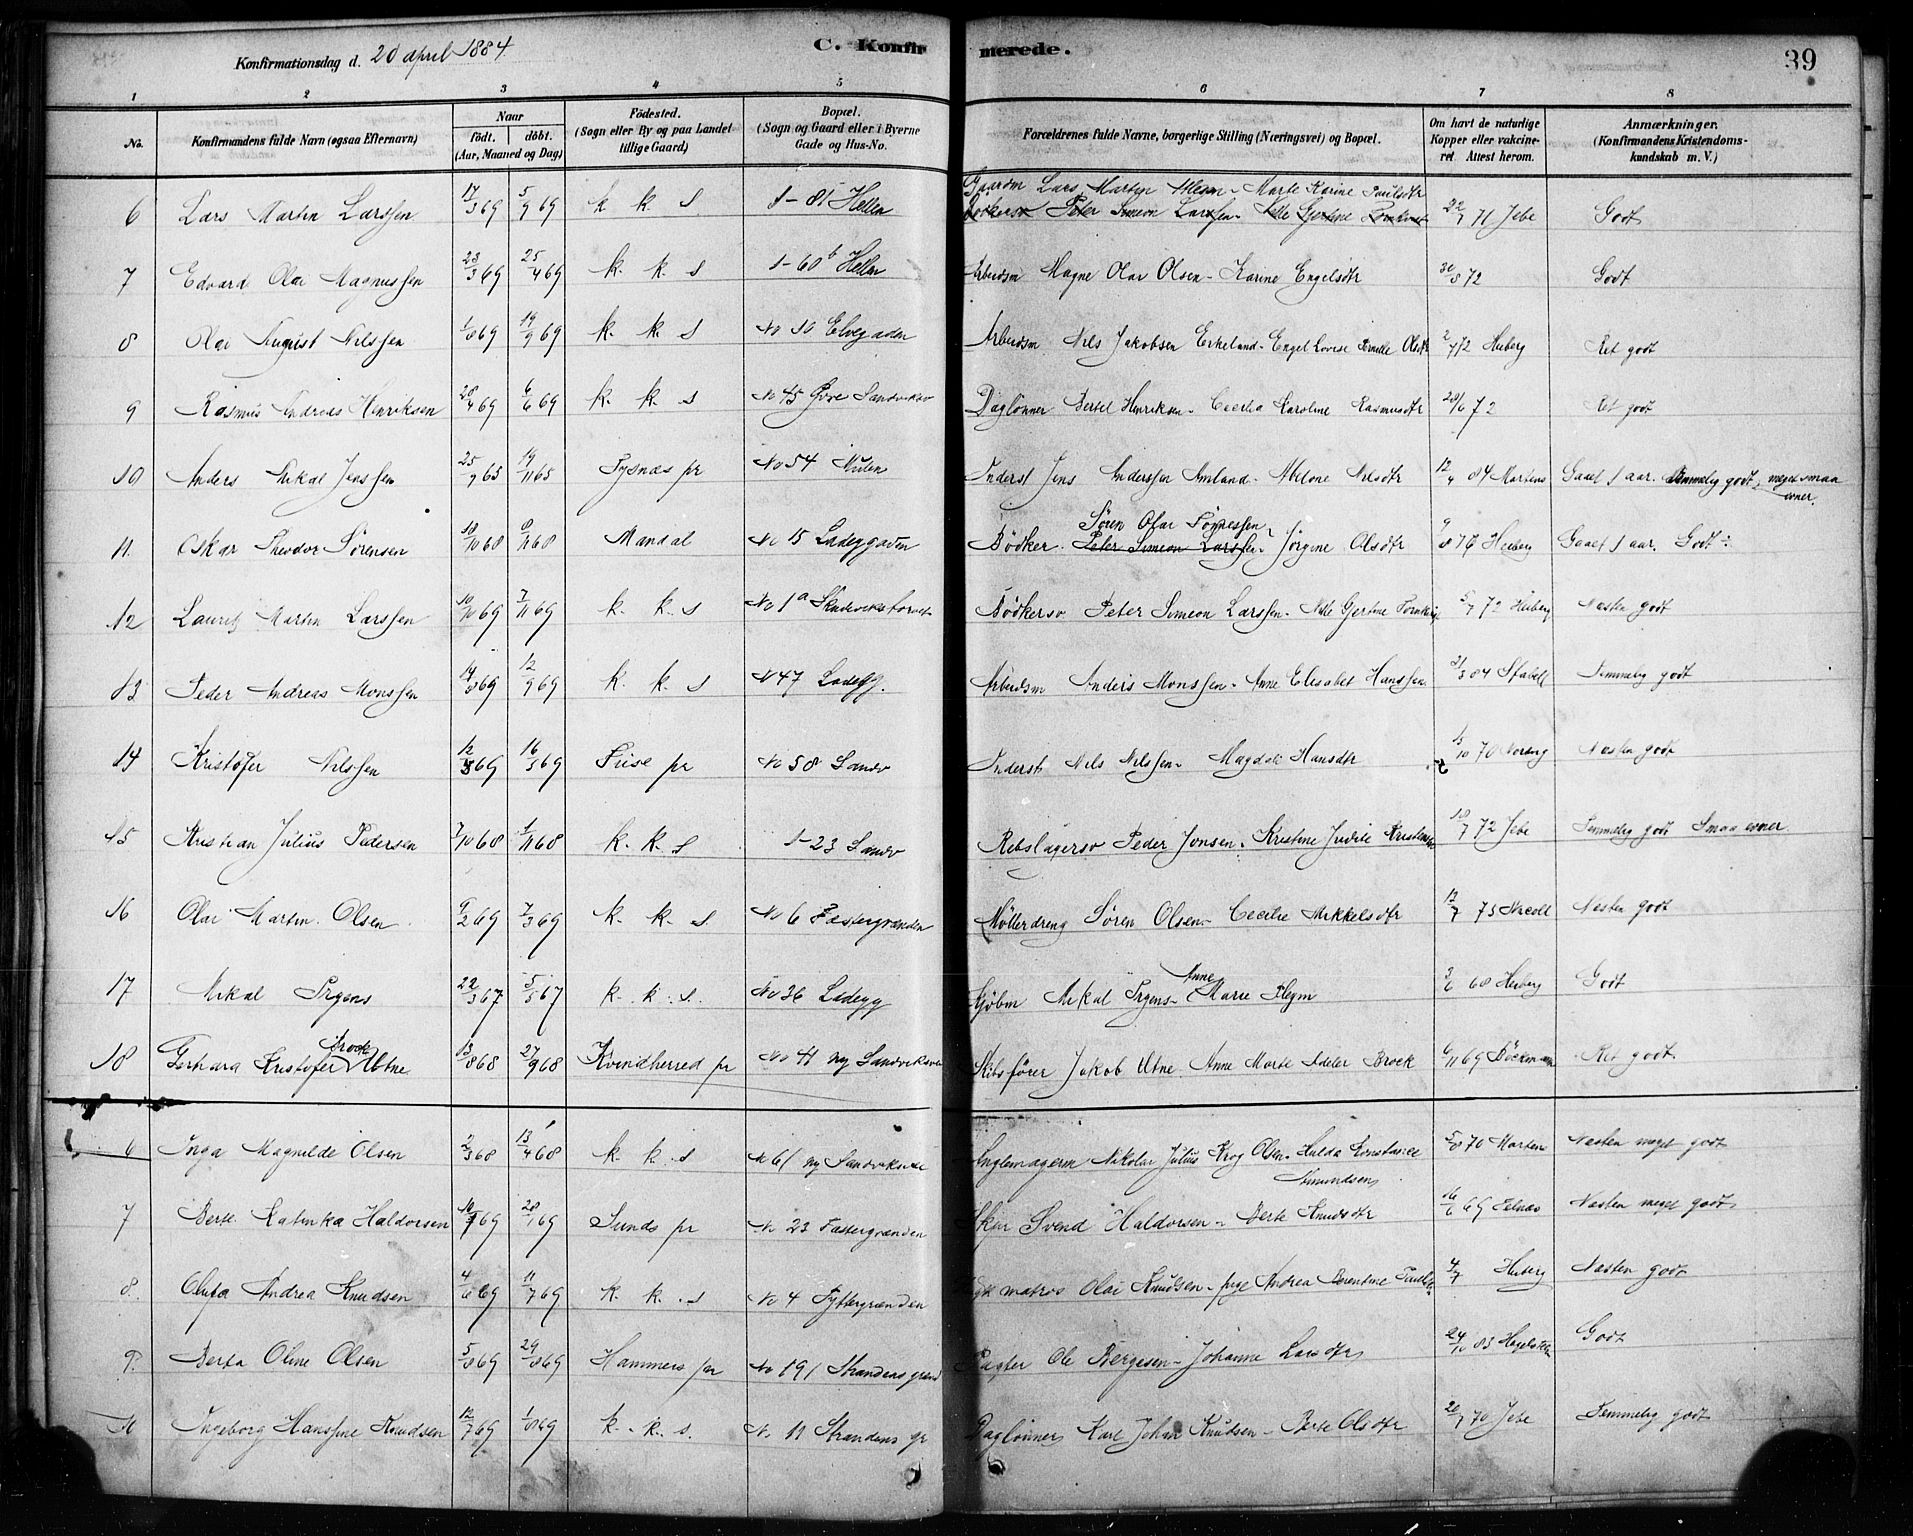 Konfirmationsdag d. 20 april 1884. C. Konfirmerede. 39
1 2 3 4 5 6 7 8
No. Konfirmandens fulde Navn (ogsaa Efternavn) Naar født. døbt. (Aar, Maaned og Dag) Fødested. (Sogn eller By og paa Landet tillige Gaard) Bopæl. (Sogn og Gaard eller i Byerne Gade og Hus-No. Forældrenes fulde Navne, borgerlige Stilling (Næringsvei) og Bopæl. Om havt de naturlige Kopper eller vakcineret. Attest herom. Anmærkninger. (Konfirmandens Kristendomskundskab m. V.)
6 Lars Martin Larssen 17/3 69 5/9 69 k. k. s 1-81 Hellen Gaardm Lars Martin Marte Karine Paulsdtr 22/7 71 Jebe Godt
Bødkersv Peter Simeon Larssen
7 Edvard Olai Magnussen 23/3 69 25/4 69 k. k. s 1-60 b Hellen Arbeidsm Magne Olai Olsen - Karine Engelsdtr 30/8 72 Godt
8 Olai August Nilssen 1/8 69 19/9 69 k. k. s No 10 Elvegaden Arbeidsm Nils Jakobsen Birkeland - Engel Lovise Pernille Olsdtr 2/7 72 Heiberg Ret godt
9 Rasmus Andreas Henriksen 28/4 69 6/6 69 k. k. s No 45 Øvre Sandviksv Daglønner Bertel Henriksen - Cecilia Karoline Rasmusdtr 28/6 72 Ret godt
10 Anders Mikal Jenssen 25/9 65 19/11 65 Tysnæs pr No 54 Mulen Inderst Jens Anderssen Amland - Abelone Nilsdtr 12/4 84 Martens Gaaet 1 aar. Temmelig godt, meget smaa evner
11. Oskar Theodor Sörensen 10/10 68 8/11 68 Mandal No 15 Ladeggaden Bödker Peter Simeon Larssen - Jörgine Olsdtr 9/8 76 Heiberg Gaaet 1 aar. Godt
Sören Olai
12 Lauritz Martin Larssen 10/10 69 7/11 69 k. k. s No 1a Skuteviks torvet Bödkersv Peter Simeon Larssen - Gjertine 5/7 72 Heiberg Næsten godt
13 Peder Andreas Monssen 14/8 69 12/9 69 k. k. s No 47 Ladegg. Arbeidsm Anders Monssen - Anne Elisabet Hanssen 31/3 84 Stabell Temmelig godt
14 Kristofer Nilssen 12/3 69 16/5 69 Fuse pr No 58 Sandv Inderst Nils Nilssen - Magdeli Hansdtr 15/10 70 Næsten godt
15 Kristian Julius Pedersen 7/10 68 1/11 68 k. k. s 1-23 Sandv Rebslagersv Peder Jonsen - Kristine Judite 10/7 72 Jebe Temmelig godt Smaa evner
16 Olai Martin Olsen 9/2 69 7/3 69 k. k. s. No 6 Fæstergrænden Möllerdreng Sören Olsen - Cecilie Mikkelsdtr 12/7 75 Nicoll Næsten godt
17 Mikal Irgens 22/3 67 5/5 67 k. k. s. No 36 Ladegg Kjöbm Mikal Irgens - Anne Marie Fleym 3/6 68 Heiberg Godt
18 Gerhard Kristofer Brock Utne 13/8 68 27/9 68 Kvindherred pr No 41 ny Sandviksvei Skibsförer Jakob Utne Anne Marte Adeler Brock 6/11 69 Böckman Ret godt
6 Inga Magnilde Olsen 2/3 68 13/4 68 k. k. s No 61 ny Sandviksvei Anglemagerm Nikolai Julius Krog Olsen - Hulda Konstance 5/8 70 Martens Næsten meget godt
Amundsen
7 Berte Katinka Haldorsen 28/1 69 Sunds pr No 23 Fæstergrænden Svend Haldorsen - Berte Knudsdtr 16/6 69 Næsten meget godt
8. Oluffa Andrea Knudsen 4/6 69 11/7 69 k. k. s No 4 Pyttergrænden matros Olai Knudsen - pige Andrea Berentine 4/7 Heiberg Næsten godt
9. Berta Oline Olsen 5/8 69 29/8 69 Hammers pr No 191 Strandens grænd Pagter Ole Børgesen - Johanne Larsdtr 24/10 83 Godt
Ingeborg Hanssine Knudsen 12/7 69 1/8 69 k. k. s. No 11 Strandens gr Daglønner Karl Johan Knudsen - Berte Olsdtr 20/7 70 Jebe Temmelig godt